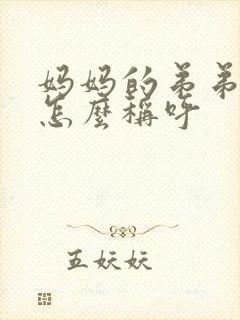 妈妈的弟弟
怎麼稱呼
五妖妖